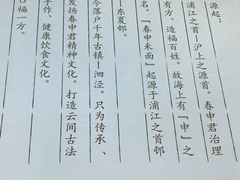 源起：
浦江之首—沪上之源首。春申君治理
方、造福百姓。故海上有『申』之
名。『春申禾面』起源于浦江之首邨
东夏邨。
今落户千年古镇—泗泾。只为传承、
发扬春申君精神文化。打造云间古法
手作、健康饮食文化。
口福一方。